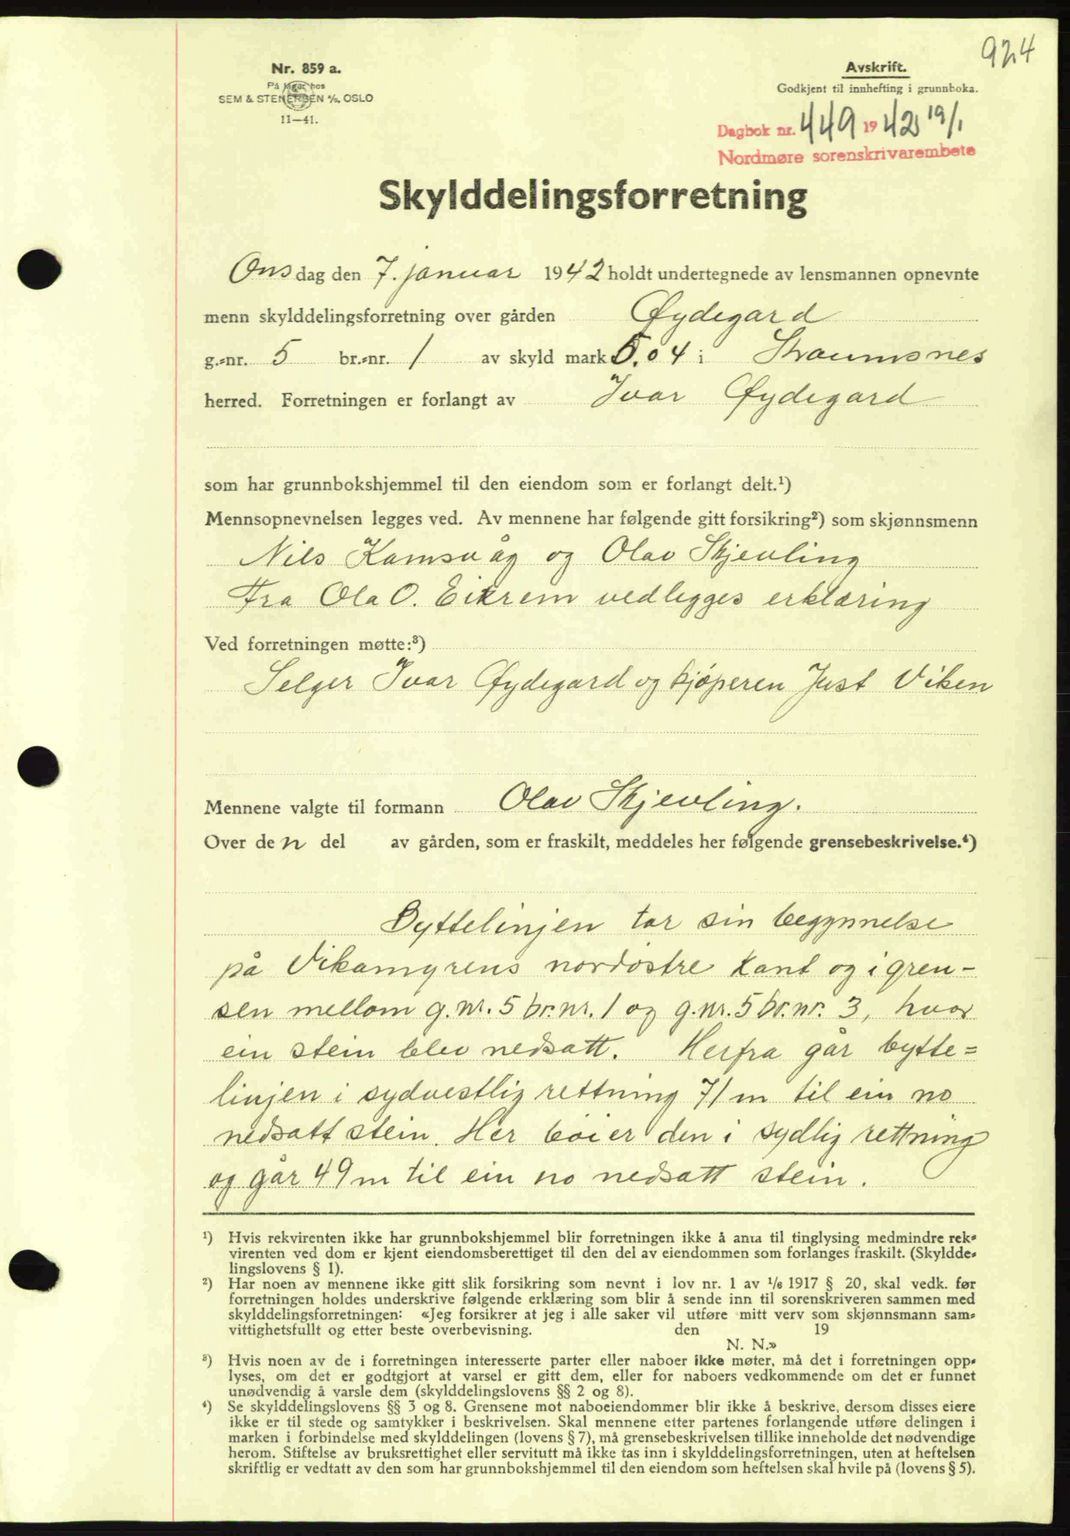 924
Nr. 859 a.
På lager hos
SEM & STENERSEN A/S, OSLO
11—41.
Avskrift.
Godkjent til innhefting i grunnboka.
Dagbok nr. 449 1942 19/1
Nordmøre sorenskrivarembete
Skylddelingsforretning
Onsdag den 7. januar 1942 holdt undertegnede av lensmannen opnevnte
menn skylddelingsforretning over gården Øydegard
g.-nr. 5 br.-nr. 1 av skyld mark 5.04 i Straumsnes
herred. Forretningen er forlangt av Ivar Øydegard
som har grunnbokshjemmel til den eiendom som er forlangt delt.¹)
Mennsopnevnelsen legges ved. Av mennene har følgende gitt forsikring²) som skjønnsmenn
Nils Kamsvåg og Olav Skjevling
Fra Ola O. Eikrem vedlegges erklæring
Ved forretningen møtte:³)
Selger Ivar Øydegard og kjøperen Just Viken
Mennene valgte til formann Olav Skjevling.
Over den del av gården, som er fraskilt, meddeles her følgende grensebeskrivelse.⁴)
Byttelinjen tar sin begynnelse
på Vikamyrens nordøstre kant og i gren-
sen mellom g.nr. 5 br.nr. 1 og g.nr. 5 br.nr. 3, hvor
ein stein blev nedsatt. Herfra går bytte=
linjen i sydvestlig rettning 71 m til ein no
nedsatt stein. Her bøier den i sydlig rettning
og går 49 m til ein no nedsatt stein.
¹) Hvis rekvirenten ikke har grunnbokshjemmel blir forretningen ikke å anta til tinglysing medmindre rek-
virenten ved dom er kjent eiendomsberettiget til den del av eiendommen som forlanges fraskilt. (Skyldde-
lingslovens § 1).
²) Har noen av mennene ikke gitt slik forsikring som nevnt i lov nr. 1 av 1/6 1917 § 20, skal vedk. før
forretningen holdes underskrive følgende erklæring som blir å sende inn til sorenskriveren sammen med
skylddelingsforretningen: «Jeg forsikrer at jeg i alle saker vil utføre mitt verv som skjønnsmann sam-
vittighetsfullt og etter beste overbevisning. den 19
N. N.»
³) Hvis noen av de i forretningen interesserte parter eller naboer ikke møter, må det i forretningen opp-
lyses, om det er godtgjort at varsel er gitt dem, eller for naboers vedkommende om det er funnet
unødvendig å varsle dem (skylddelingslovens §§ 2 og 8).
⁴) Se skylddelingslovens §§ 3 og 8. Grensene mot naboeiendommer blir ikke å beskrive, dersom disses eiere
ikke er til stede og samtykker i beskrivelsen. Skal mennene etter partenes forlangende utføre delingen i
marken i forbindelse med skylddelingen (lovens § 7), må grensebeskrivelsen tillike inneholde det nødvendige
herom. Stiftelse av bruksrettighet eller servitutt må ikke tas inn i skylddelingsforretningen, uten at heftelsen
skriftlig er vedtatt av den som har grunnbokshjemmel til den eiendom som heftelsen skal hvile på (lovens § 5).